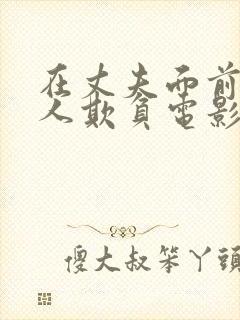 在丈夫面前
人欺負電影
傻大叔笨丫頭